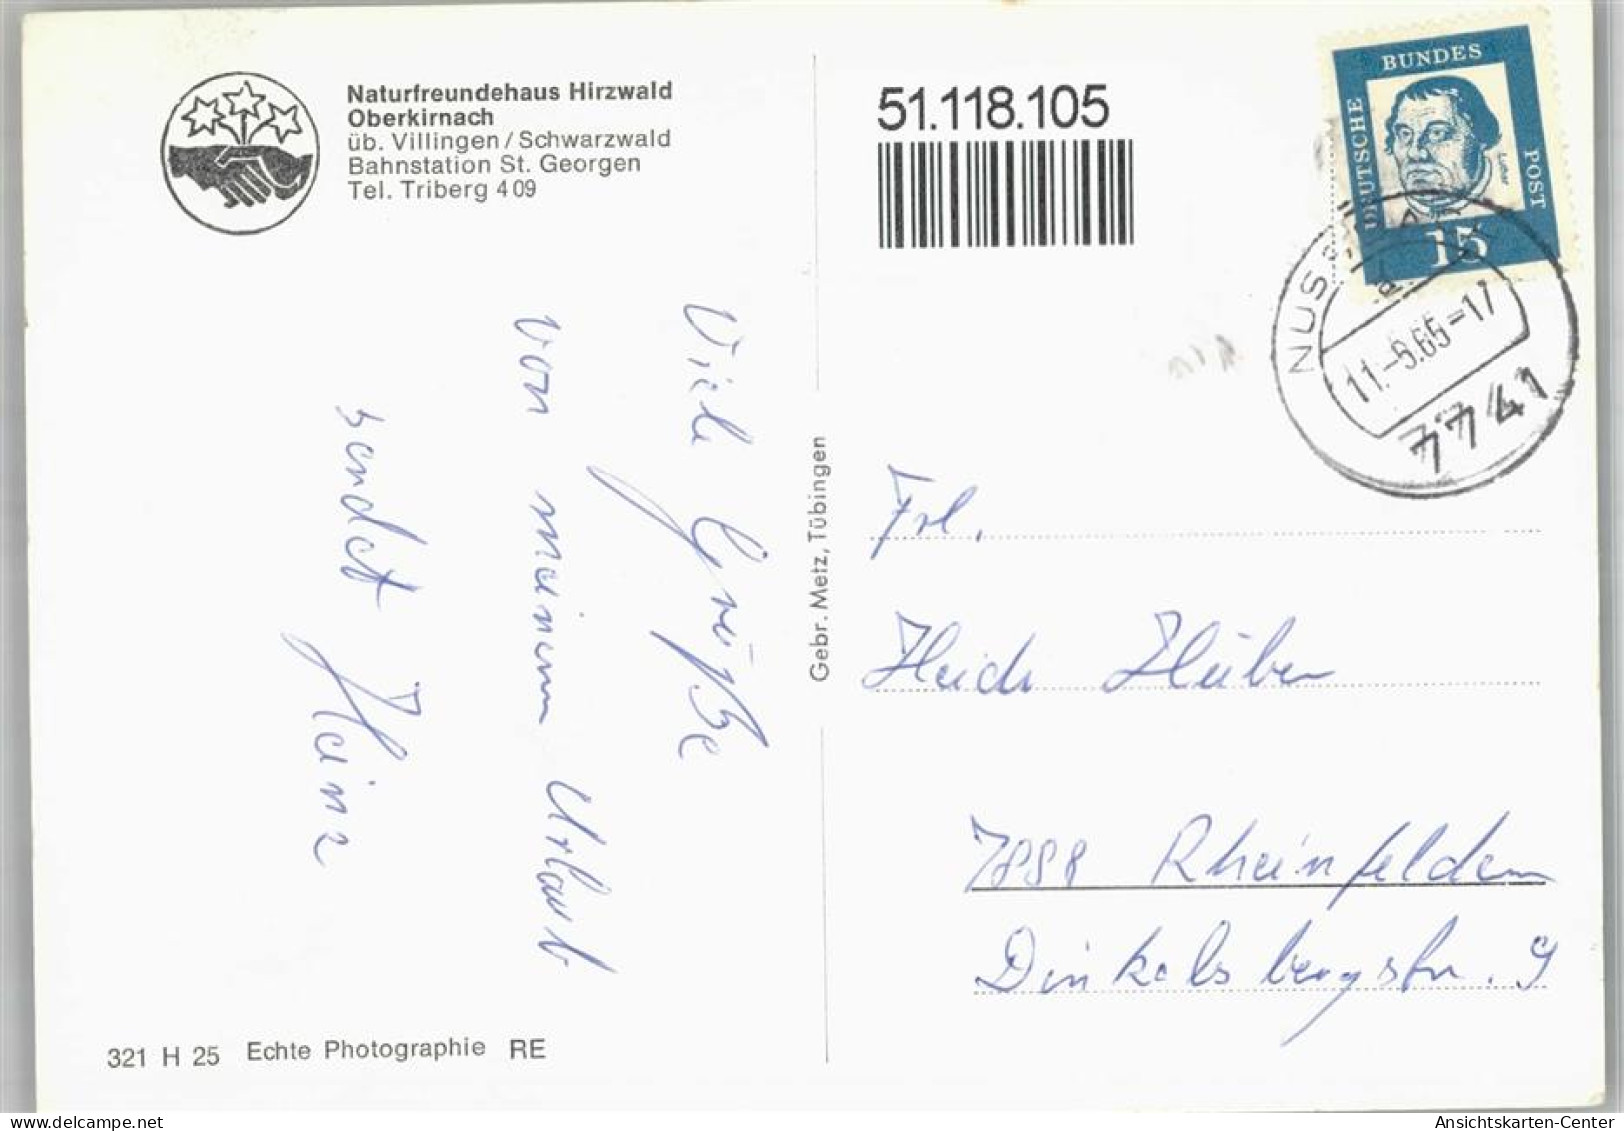 Naturfreundehaus Hirzwald
Oberkirnach
üb. Villingen / Schwarzwald
Bahnstation St. Georgen
Tel. Triberg 4 09
Viele Grüße
von meinem Urlaub
sendet Heinz
321 H 25 Echte Photographie RE
Gebr. Metz, Tübingen
51.118.105
DEUTSCHE
BUNDES
POST
Luther
15
11.-5.65-17
7741
Frl.
Heidi Hüber
7888 Rheinfelden
Dinkelsbergstr. 9
Ansichtskarten-Center